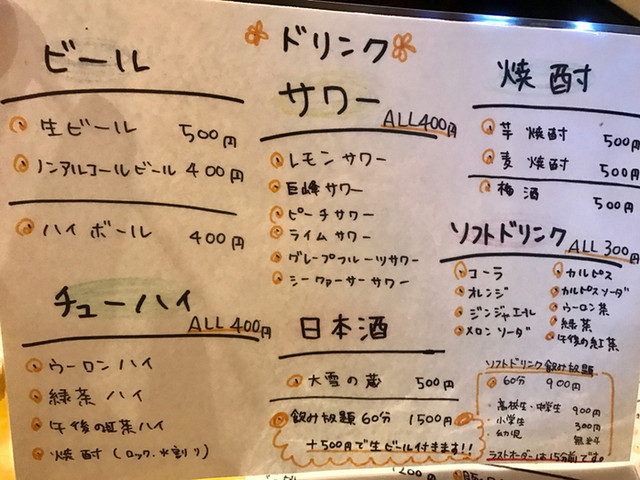 ドリンク
ビール
生ビール 500円
ノンアルコールビール 400円
ハイボール 400円
チューハイ
ALL400円
ウーロンハイ
緑茶ハイ
午後の紅茶ハイ
焼酎(ロック、水割り)
サワー
ALL400円
レモンサワー
巨峰サワー
ピーチサワー
ライムサワー
グレープフルーツサワー
シークァーサーサワー
日本酒
大雪の蔵 500円
飲み放題60分 1500円
+500円で生ビール付きます!!
焼酎
芋焼酎 500円
麦焼酎 500円
梅酒 500円
ソフトドリンク
ALL300円
コーラ
オレンジ
ジンジャエール
メロンソーダ
カルピス
カルピスソーダ
ウーロン茶
緑茶
午後の紅茶
ソフトドリンク飲み放題
60分 900円
・高校生・中学生 900円
・小学生 300円
・幼児 無料
ラストオーダーは15分前です。